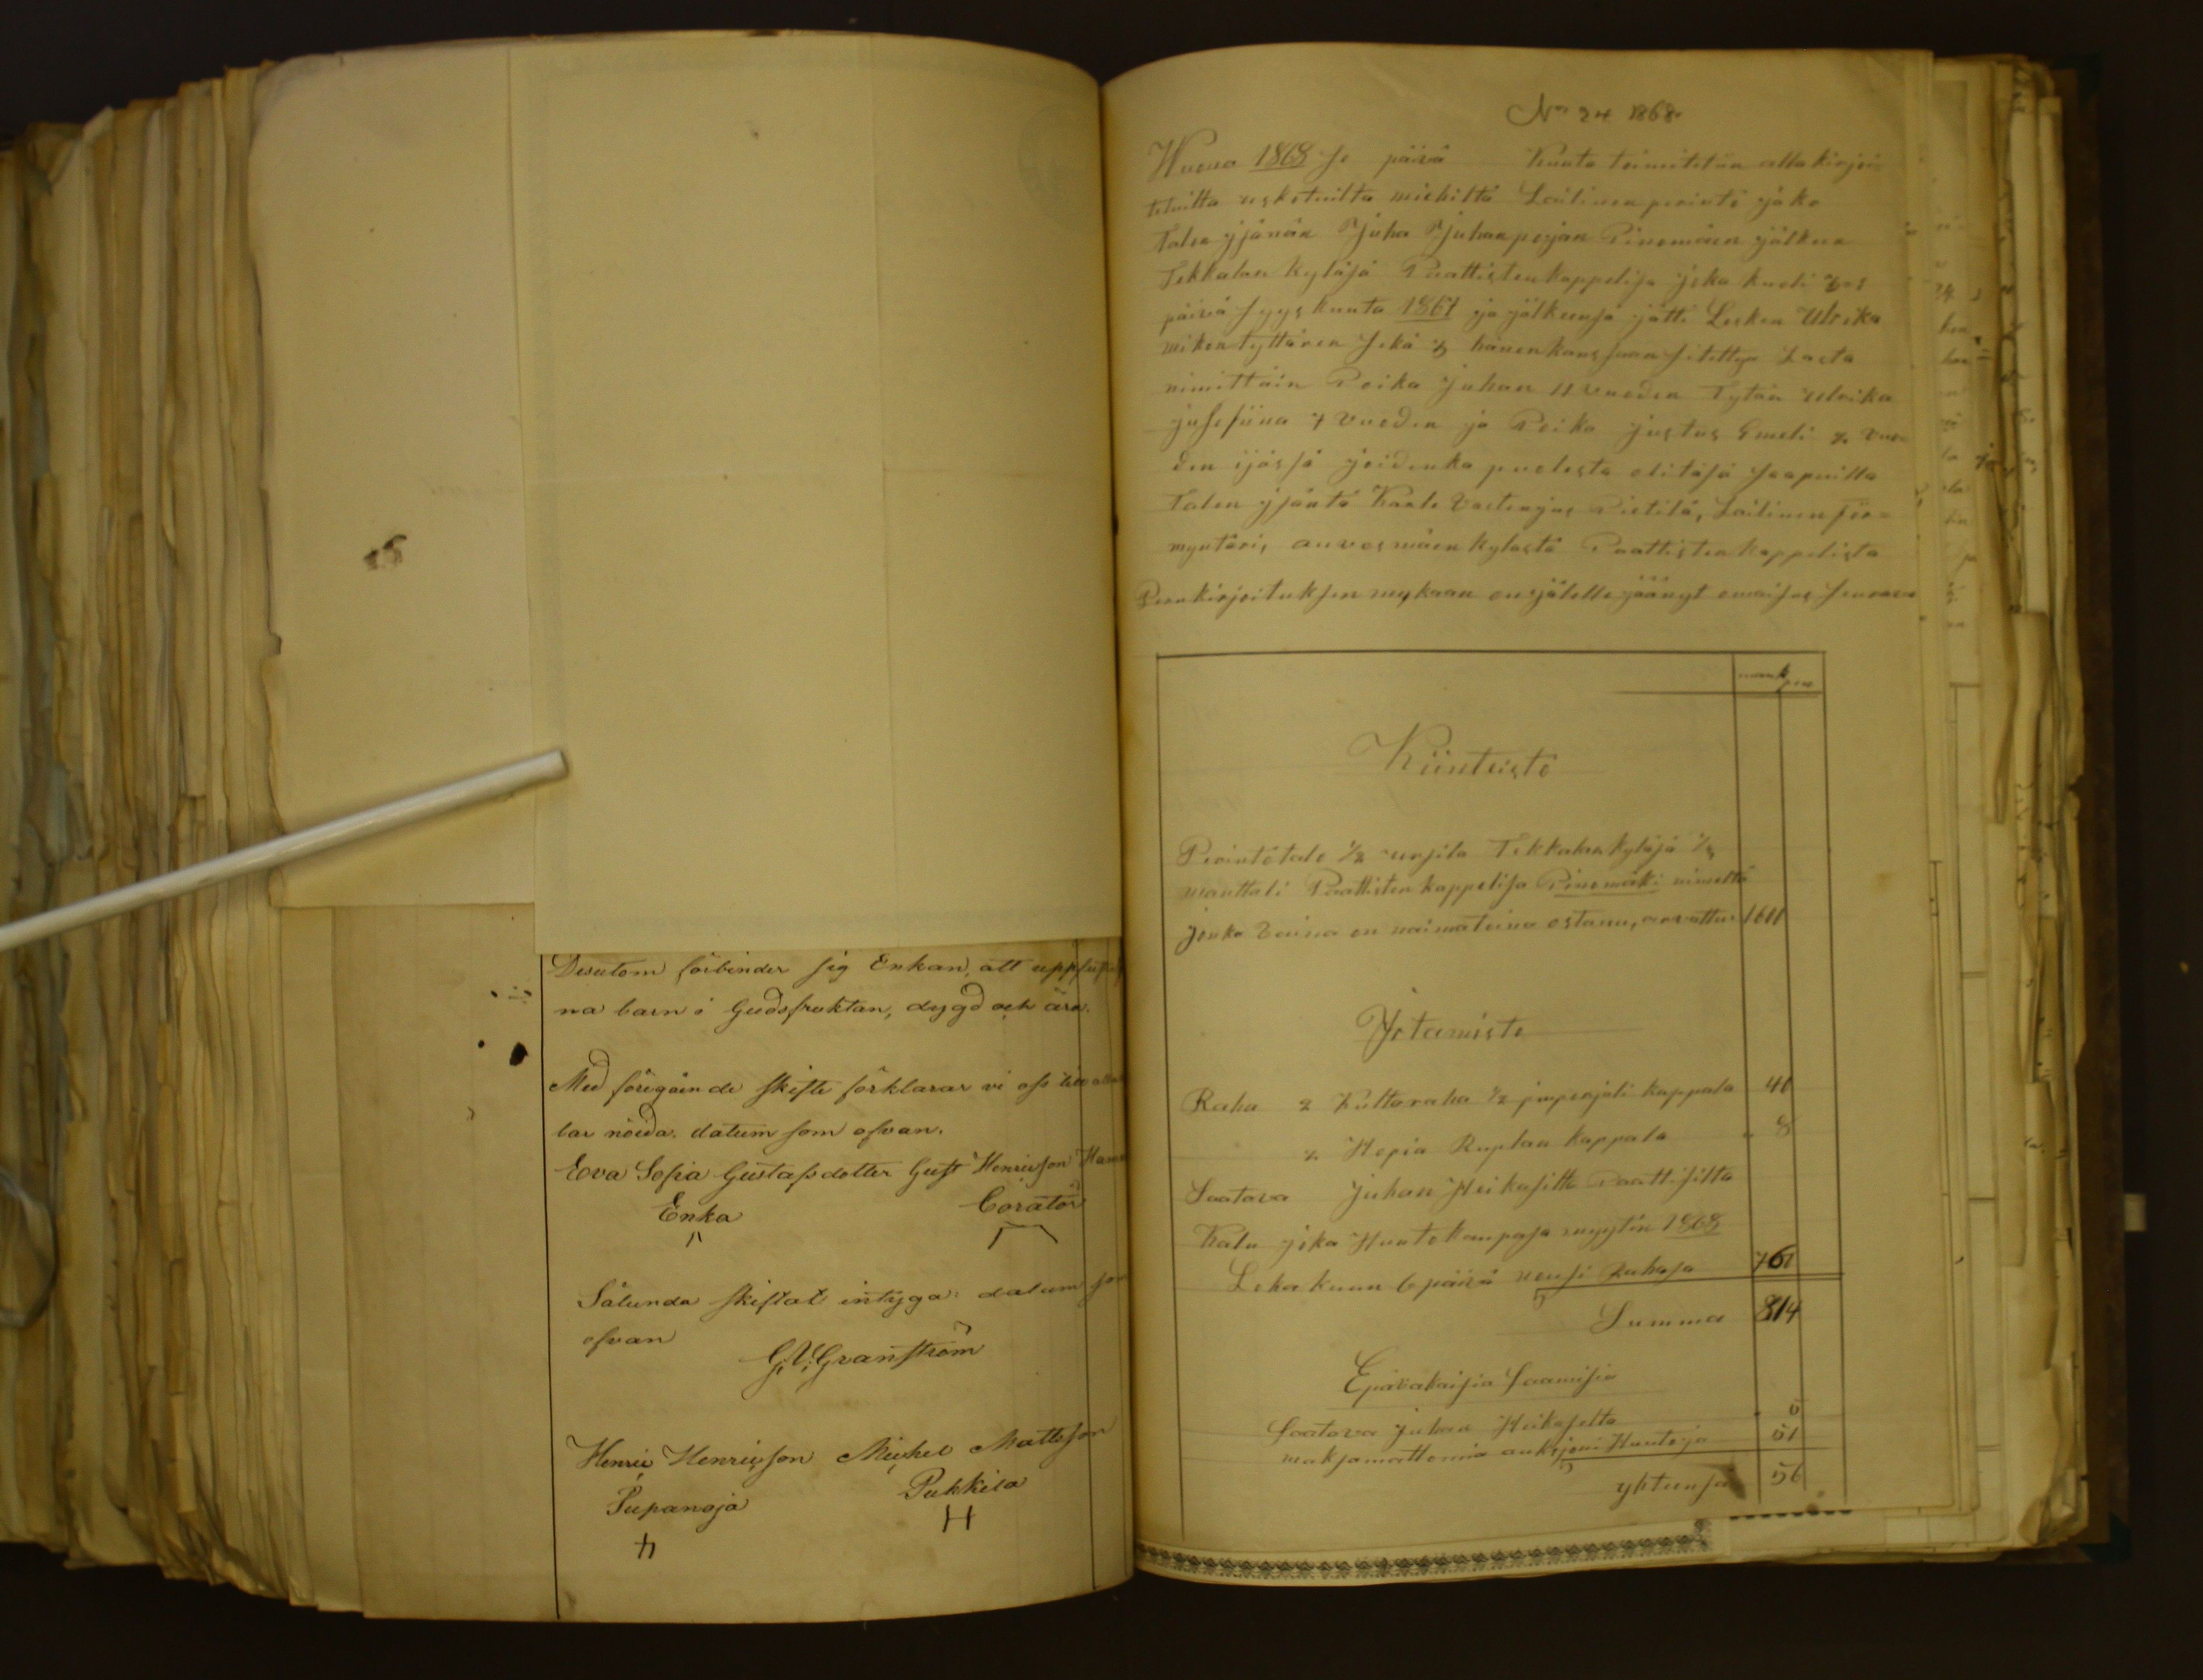 Desutom förbinder sig Enkan, att uppfost
na barn i Gudsfruktan, dygd och ära.
Med föregående skifte förklarar vi oss
bar nöida. datum som ofvan.
Eva Sofia Gustafsdotter Gust Henricsson
Enka Corator
Sålunda skiftat intyga: datum som
ofvan
G.V. Granström
Henric Henricsson Michel Mattsson
Pupanoja Pukkila
No 24 1868.
Wuona 1868 se päivä Kuuta toimitetiin allakirjoi-
tetuilta uskotuilta miehiltä Lailinen perintö jako
Talon jsänän Juha Juhanpojan Pinomäen jälkeen
Tekkalan kyläsä Paattisten kappelisa joka kuoli
päivä syyskuuta 1867 ja jälkeensä jätti Lesken Ulrika
miken tyttären sekä 3 hänen kanssaan siitettyä Lasta
nimittäin Poika Juhan 11 vuoden Tytän Ulrika
Josefiina 7 vuoden ja Poika Justus Emeli 2 vuo-
den ijässä joidenka puolesta oli täsä saapuilla
Talon jsäntä Kaarle Pietilä, Lailinen för-
myntäri, auvosmäen kylästä Paattisten kappelista
Perukirjoituksen mykaan on jälelle jäänyt omaisus seurava
mark pen
Kiinteisto
Perintötalo 1/2 Tekkalan kyläsä 1/3
manttali Paattisten kappelisa Pinomäki nimeltä
jonka vaina on naimatoina ostanu, arvattu 1600
Yrtamisto
Raha 2 Kultaraha 1/2 jmperjali kappala 40
2 Hopia Ruplan kappala 8
Saatava Juhan Heikasilta Paattisilta
Kalu joka Huutokaupasa myytin 1868
Lokakuun 6 päivä nousi Rahasa 761
Summa 814
Epävakaisia Saamisia
Saatava Juhan Heikaselta 5
maksamattomia auksjoni Huutoja 51
yhteensä 56